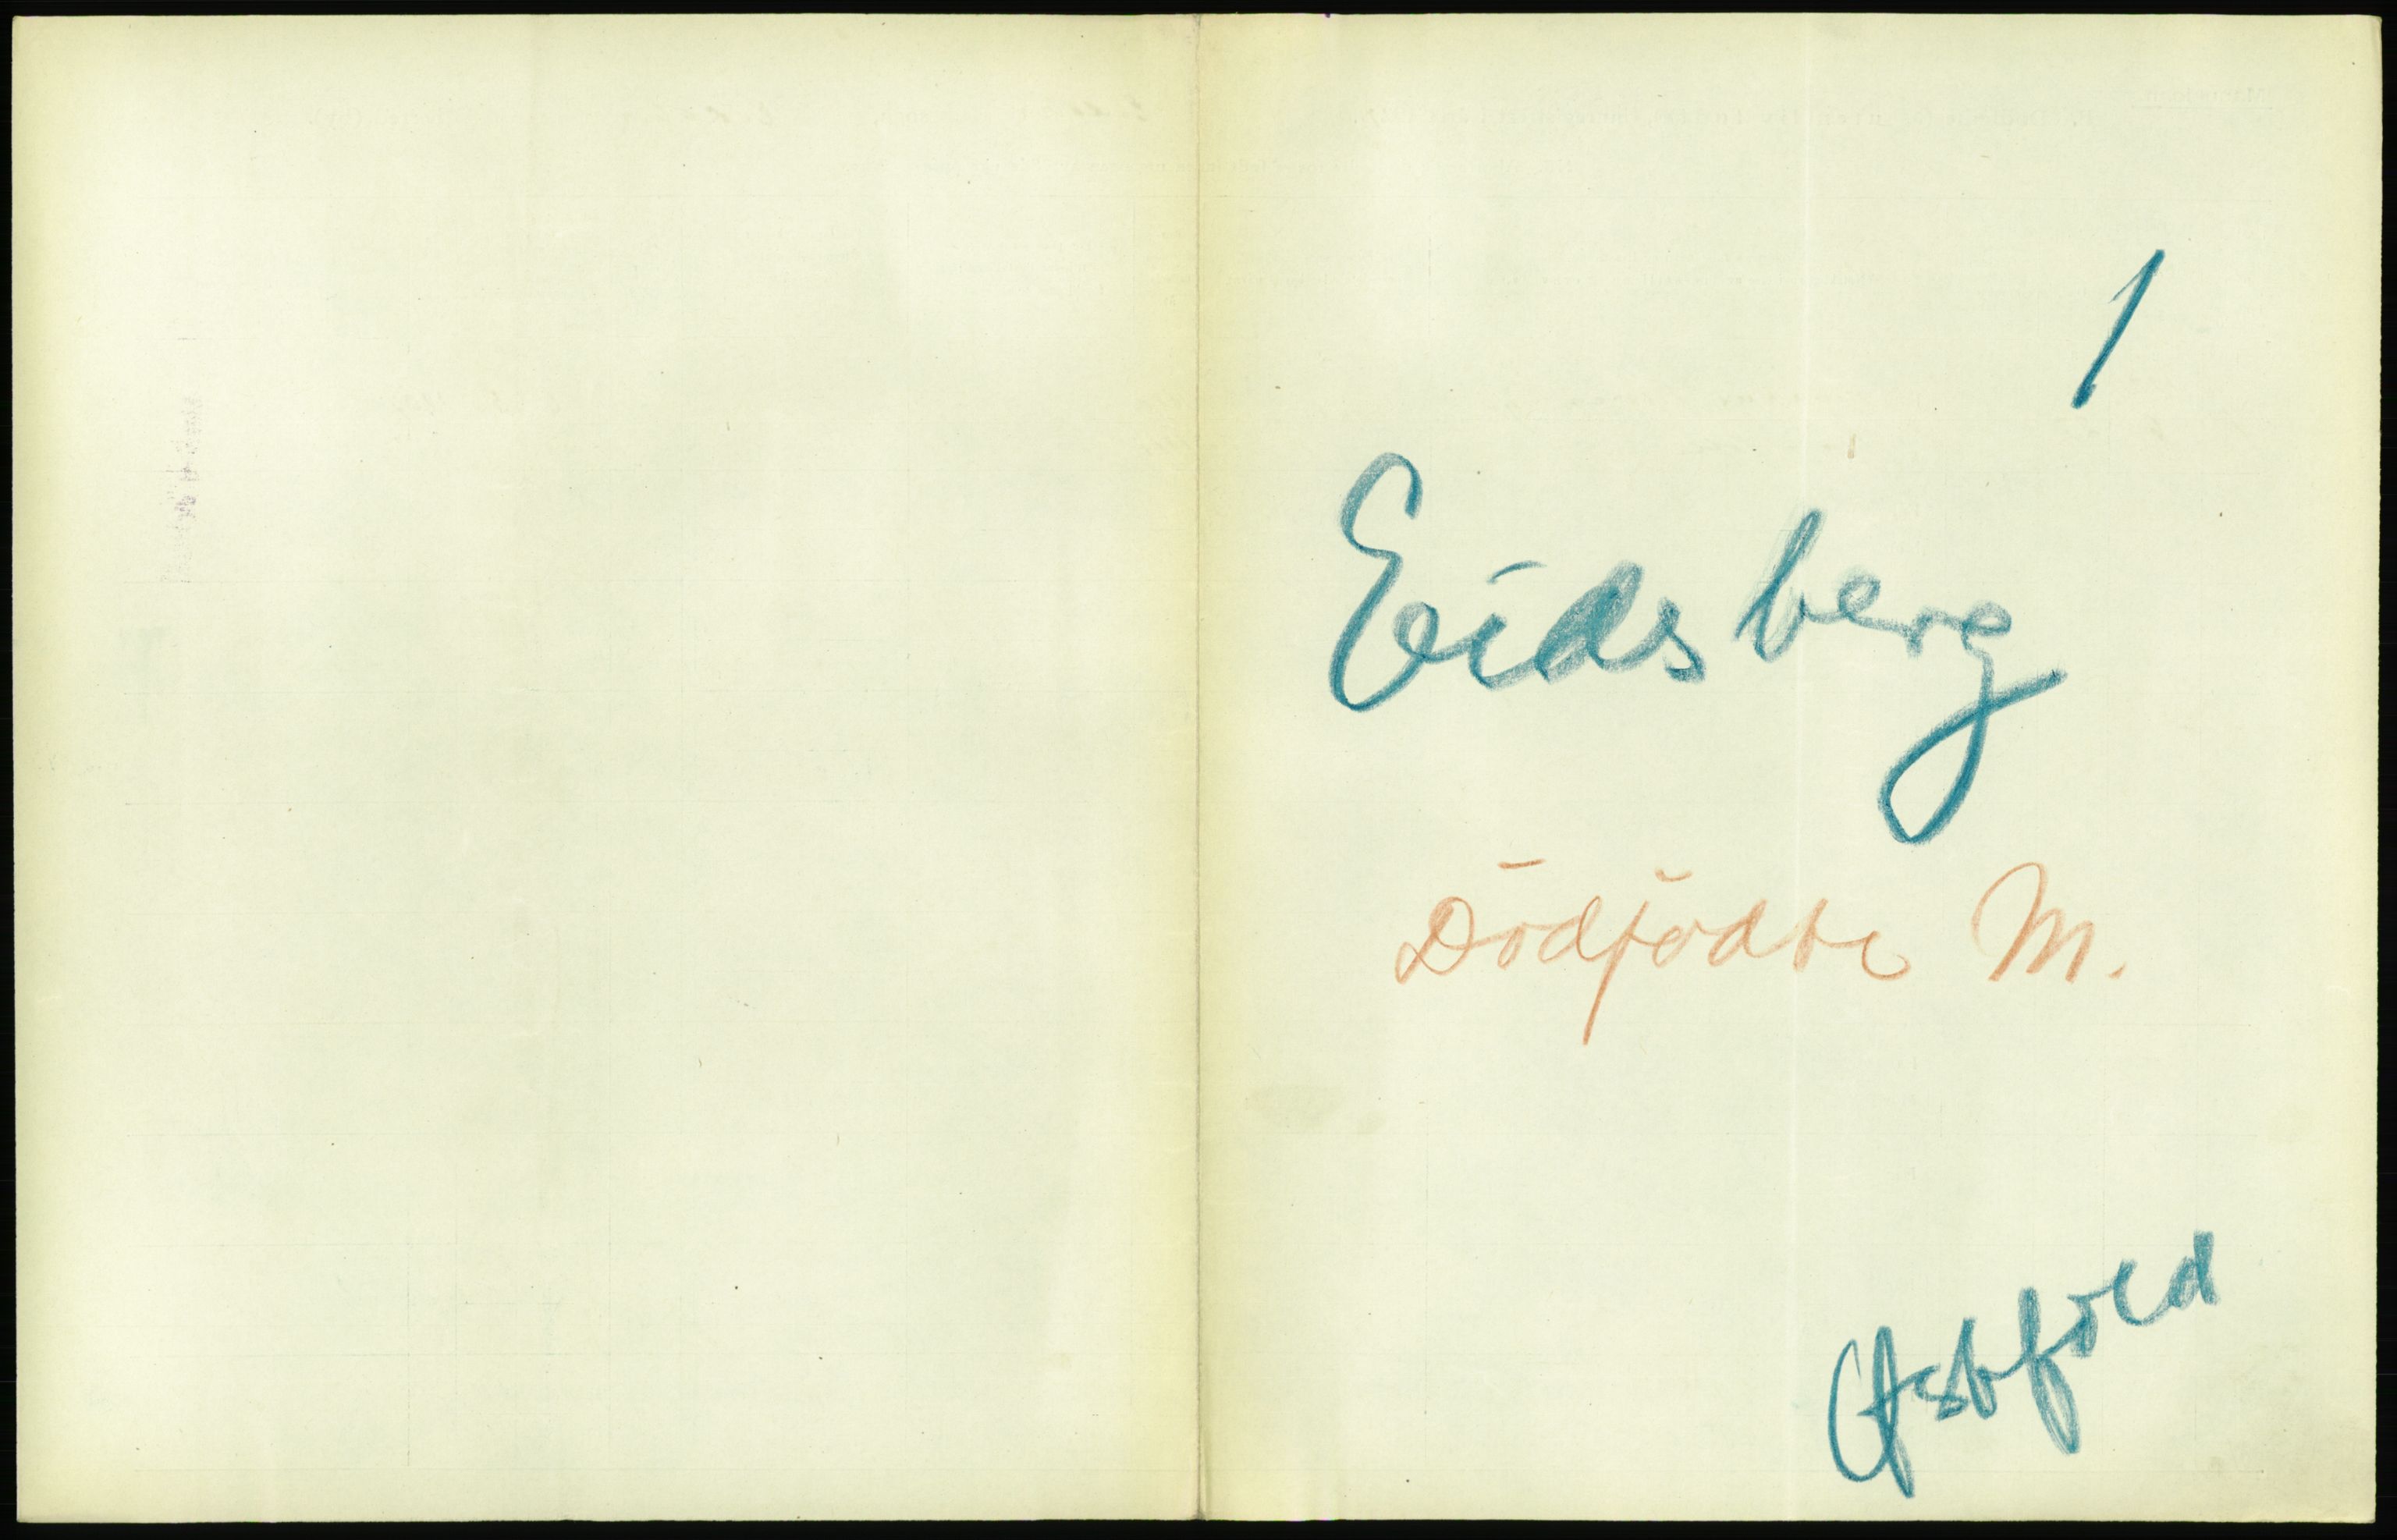 1
Eidsberg
Dödfödte M.
Østfold